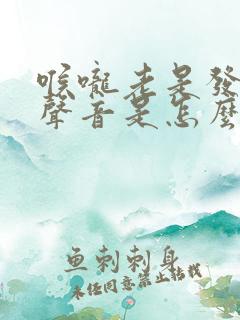 喉嚨老是發
聲音是怎麼
鱼刺刺身
未经同意禁止转载